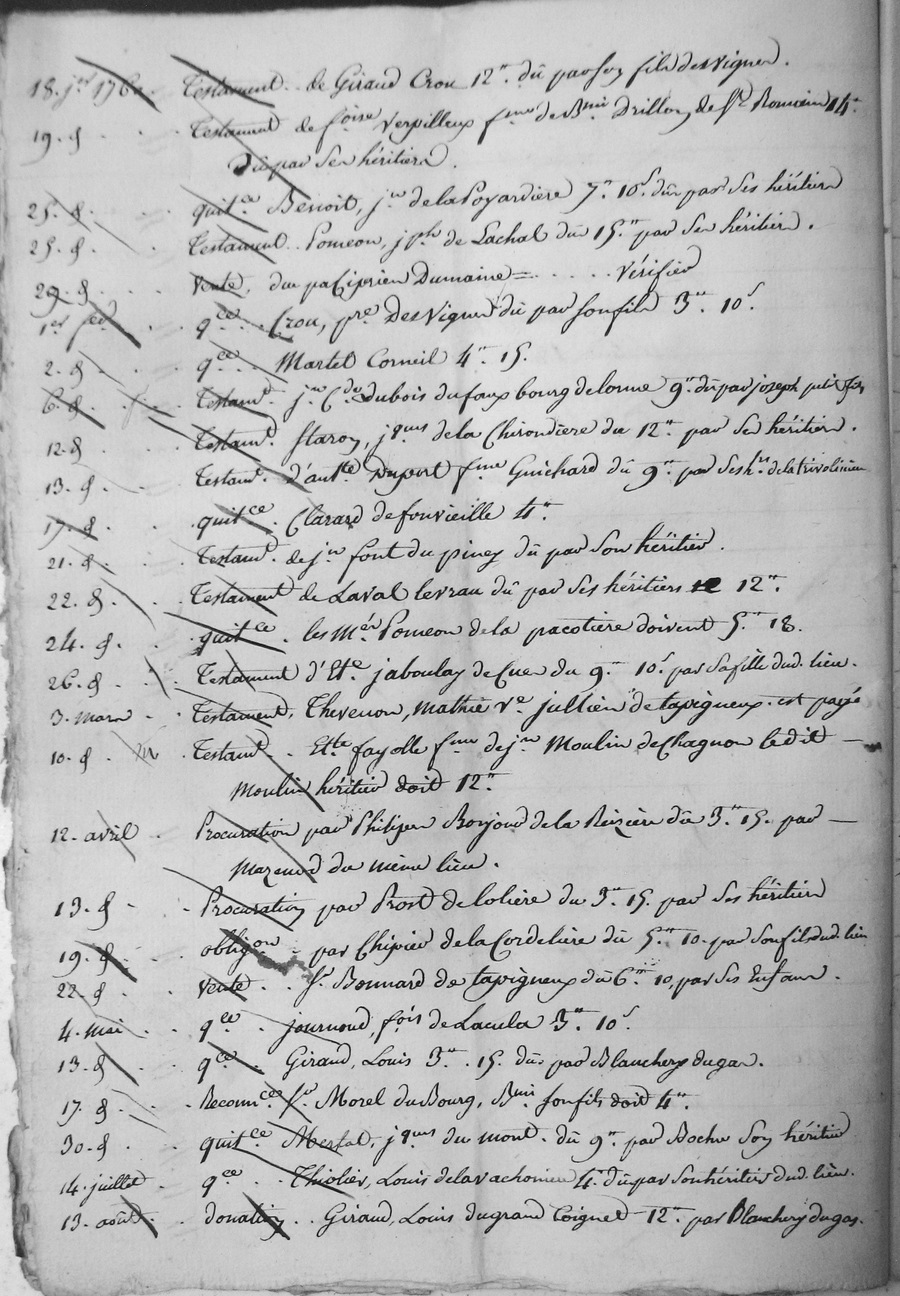 18. jer 1760 Testament de Giraud Crou 12tt dû par son fils des vignes.
19. d Testament de foise Verpilleux fme de Bmi Drillon de St Romain 14tt
Dû par ses héritiers.
25. d quitce Benoit, jn de la Poyardiere 7tt 10s dû par ses héritiers
25. d Testament Pomeon, jph de Lachal du 15tt par ses héritiers.
29. d Vente, du pa Ciprien Dumaine = vérifier
1er fer qce Crou, pre Des Vignes dû par son fils 3tt 10s
2. d qce Martel Corneil 4tt 15.
6. d Testamt jn Cde Dubois du faux bourg delorme 9tt dû par joseph petit fils
12. d Testamt flaron, jqmes de la Chirondiere du 12tt par ses héritiers.
13. d Testamt d'ante Duport fme Guichard dû 9tt par ses hrs de la trivoliniere
17. d quitce Clarard de fonvieille 4tt
21. d Testamt de jn font du piney dû par son héritier.
22. d Testament de Laval levrau dû par ses héritiers 12tt
24. d quitce les Mers Pomeon de la pacotiere doivent 5tt 18.
26. d Testament d'Ete jaboulay de Cuer du 9tt 10s par sa fille dud. lieu.
3. mars Testament, Thevenon, Mathie ve jullien de tapigneux est payé
10. d Testamt Ette fayolle fme de jn Moulin de Chagnon ledit
Moulin héritier doit 12tt
12. avril Procuration par Philipen Bonjour de la Reiziere dû 3tt 15. par
Mazenod du même lieu.
13. d Procuration par Prost de loliere du 3tt 15. par ses héritiers
19. d obligon par Chipier de la Cordeliere dû 5tt 10. par son fils dud. lieu
22. d Vente. fs Bonnard de tapigneux dû 6tt 10, par ses Enfans.
4. mai qce journoud, fois de Lacula 3tt 10s
13. d qce Giraud, Louis 3tt 15. dû par Blanchery dugas.
17. d Reconnce fs Morel du Bourg, Bmi son fils doit 4tt
30. d quitce Merfal, jqmes du mont. dû 9tt par Bochu son héritier
14. juillet qce Thiolier, Louis de la vachoniere 4tt dû par son héritier dud. lieu.
13. août donation Giraud, Louis du grand Coignet 12tt par Blanchery dugas.